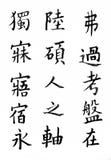 弗過考盤在
陸碩人之軸
獨寐寤宿永